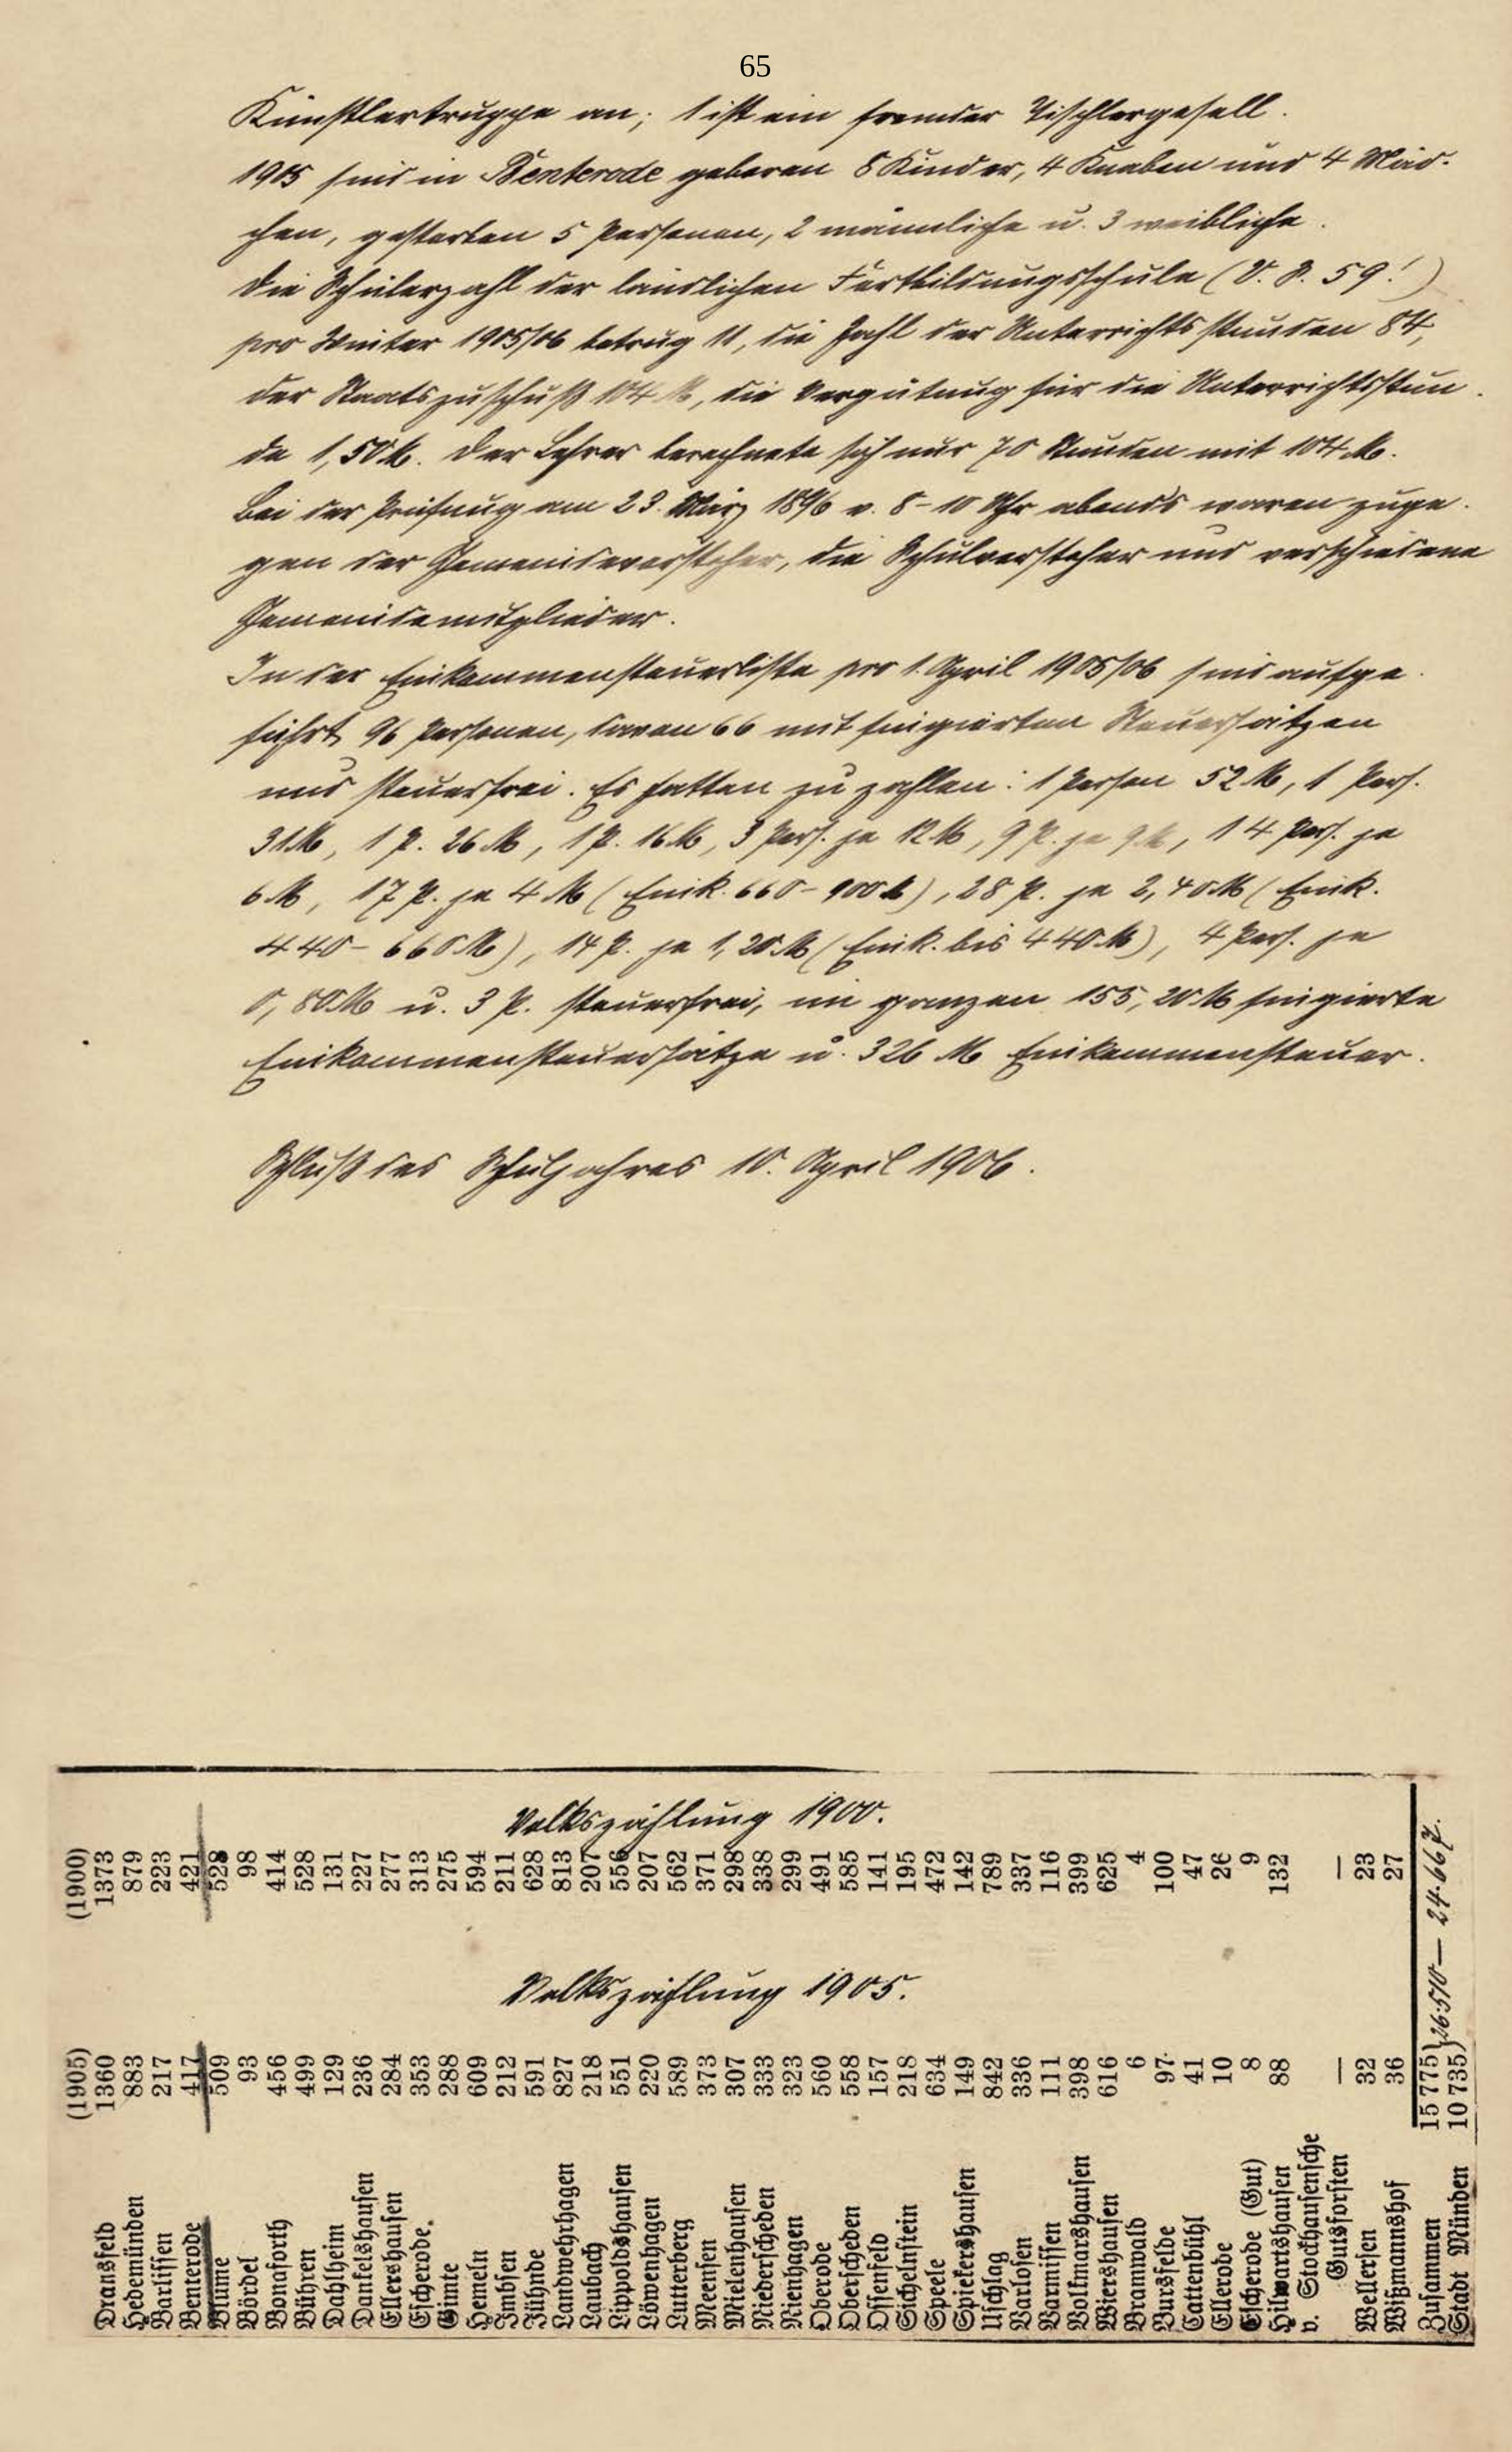 65
Künstlertruppe an; 1 ist ein fremder Tischlergesell.
1905 sind in Benterode geboren 8 Kinder, 4 Knaben und 4 Mäd-
chen, gestorben 5 Personen, 2 männliche u. 3 weibliche.
Die Schülerzahl der ländlichen Fortbildungsschule (V. S. 59!)
pro Winter 1905/06 betrug 11, die Zahl der Unterrichtsstunden 84,
der Staatszuschuß 104 M, die Vergütung für die Unterrichtsstun-
de 1,50 M. Der Lehrer berechnete sich nur 70 Stunden mit 104 M.
Bei der Prüfung am 23. März 1896 v. 8–10 Uhr abends waren zuge-
gen der Gemeindevorsteher, die Schulvorsteher und verschiedene
Gemeindemitglieder.
In der Einkommensteuerliste pro 1. April 1905/06 sind aufge-
führt 96 Personen, davon 66 mit fingierten Steuersätzen
und steuerfrei. Es hatten zu zahlen: 1 Person 52 M, 1 Pers.
31 M, 1 P. 26 M, 1 P. 16 M, 3 Pers. je 12 M, 9 P. je 9 M, 14 Pers. je
6 M, 17 P. je 4 M (Eink. 660–900 M), 28 P. je 2,40 M (Eink.
440–660 M), 14 P. je 1,20 M (Eink. bis 440 M), 4 Pers. je
0,80 M u. 3 P. steuerfrei, im ganzen 155,20 M fingierte
Einkommensteuersätze u. 326 M Einkommensteuer.
Schluß des Schuljahres 10. April 1906.
Volkszählung 1905. Volkszählung 1900.
(1905) (1900)
Dransfeld 1360 1373
Hedemünden 883 879
Barlissen 217 223
Benterode 417 421
Blume 509 528
Bördel 93 98
Bonaforth 456 414
Bühren 499 528
Dahlheim 129 131
Dankelshausen 236 227
Ellershausen 284 277
Eicherode. 353 313
Gimte 288 275
Hemeln 609 594
Imbsen 212 211
Jühnde 591 628
Landwehrhagen 827 813
Laubach 218 207
Lippoldshausen 551 556
Löwenhagen 220 207
Lutterberg 589 562
Meensen 373 371
Mielenhausen 307 298
Niederscheden 333 338
Nienhagen 323 299
Oberode 560 491
Oberscheden 558 585
Ossenfeld 157 141
Sichelnstein 218 195
Speele 634 472
Spiekershausen 149 142
Uschlag 842 789
Varlosen 336 337
Varmissen 111 116
Volkmarshausen 398 399
Wiershausen 616 625
Bramwald 6 4
Bursfelde 97 100
Cattenbühl 41 47
Ellerode 10 26
Eicherode (Gut) 8 9
Hilwartshausen 88 132
v. Stockhausensche
Gutsforsten — —
Wellersen 32 23
Wißmannshof 36 27
Zusammen 15 775
Stadt Münden 10 735 } 26.510 — 24.667.